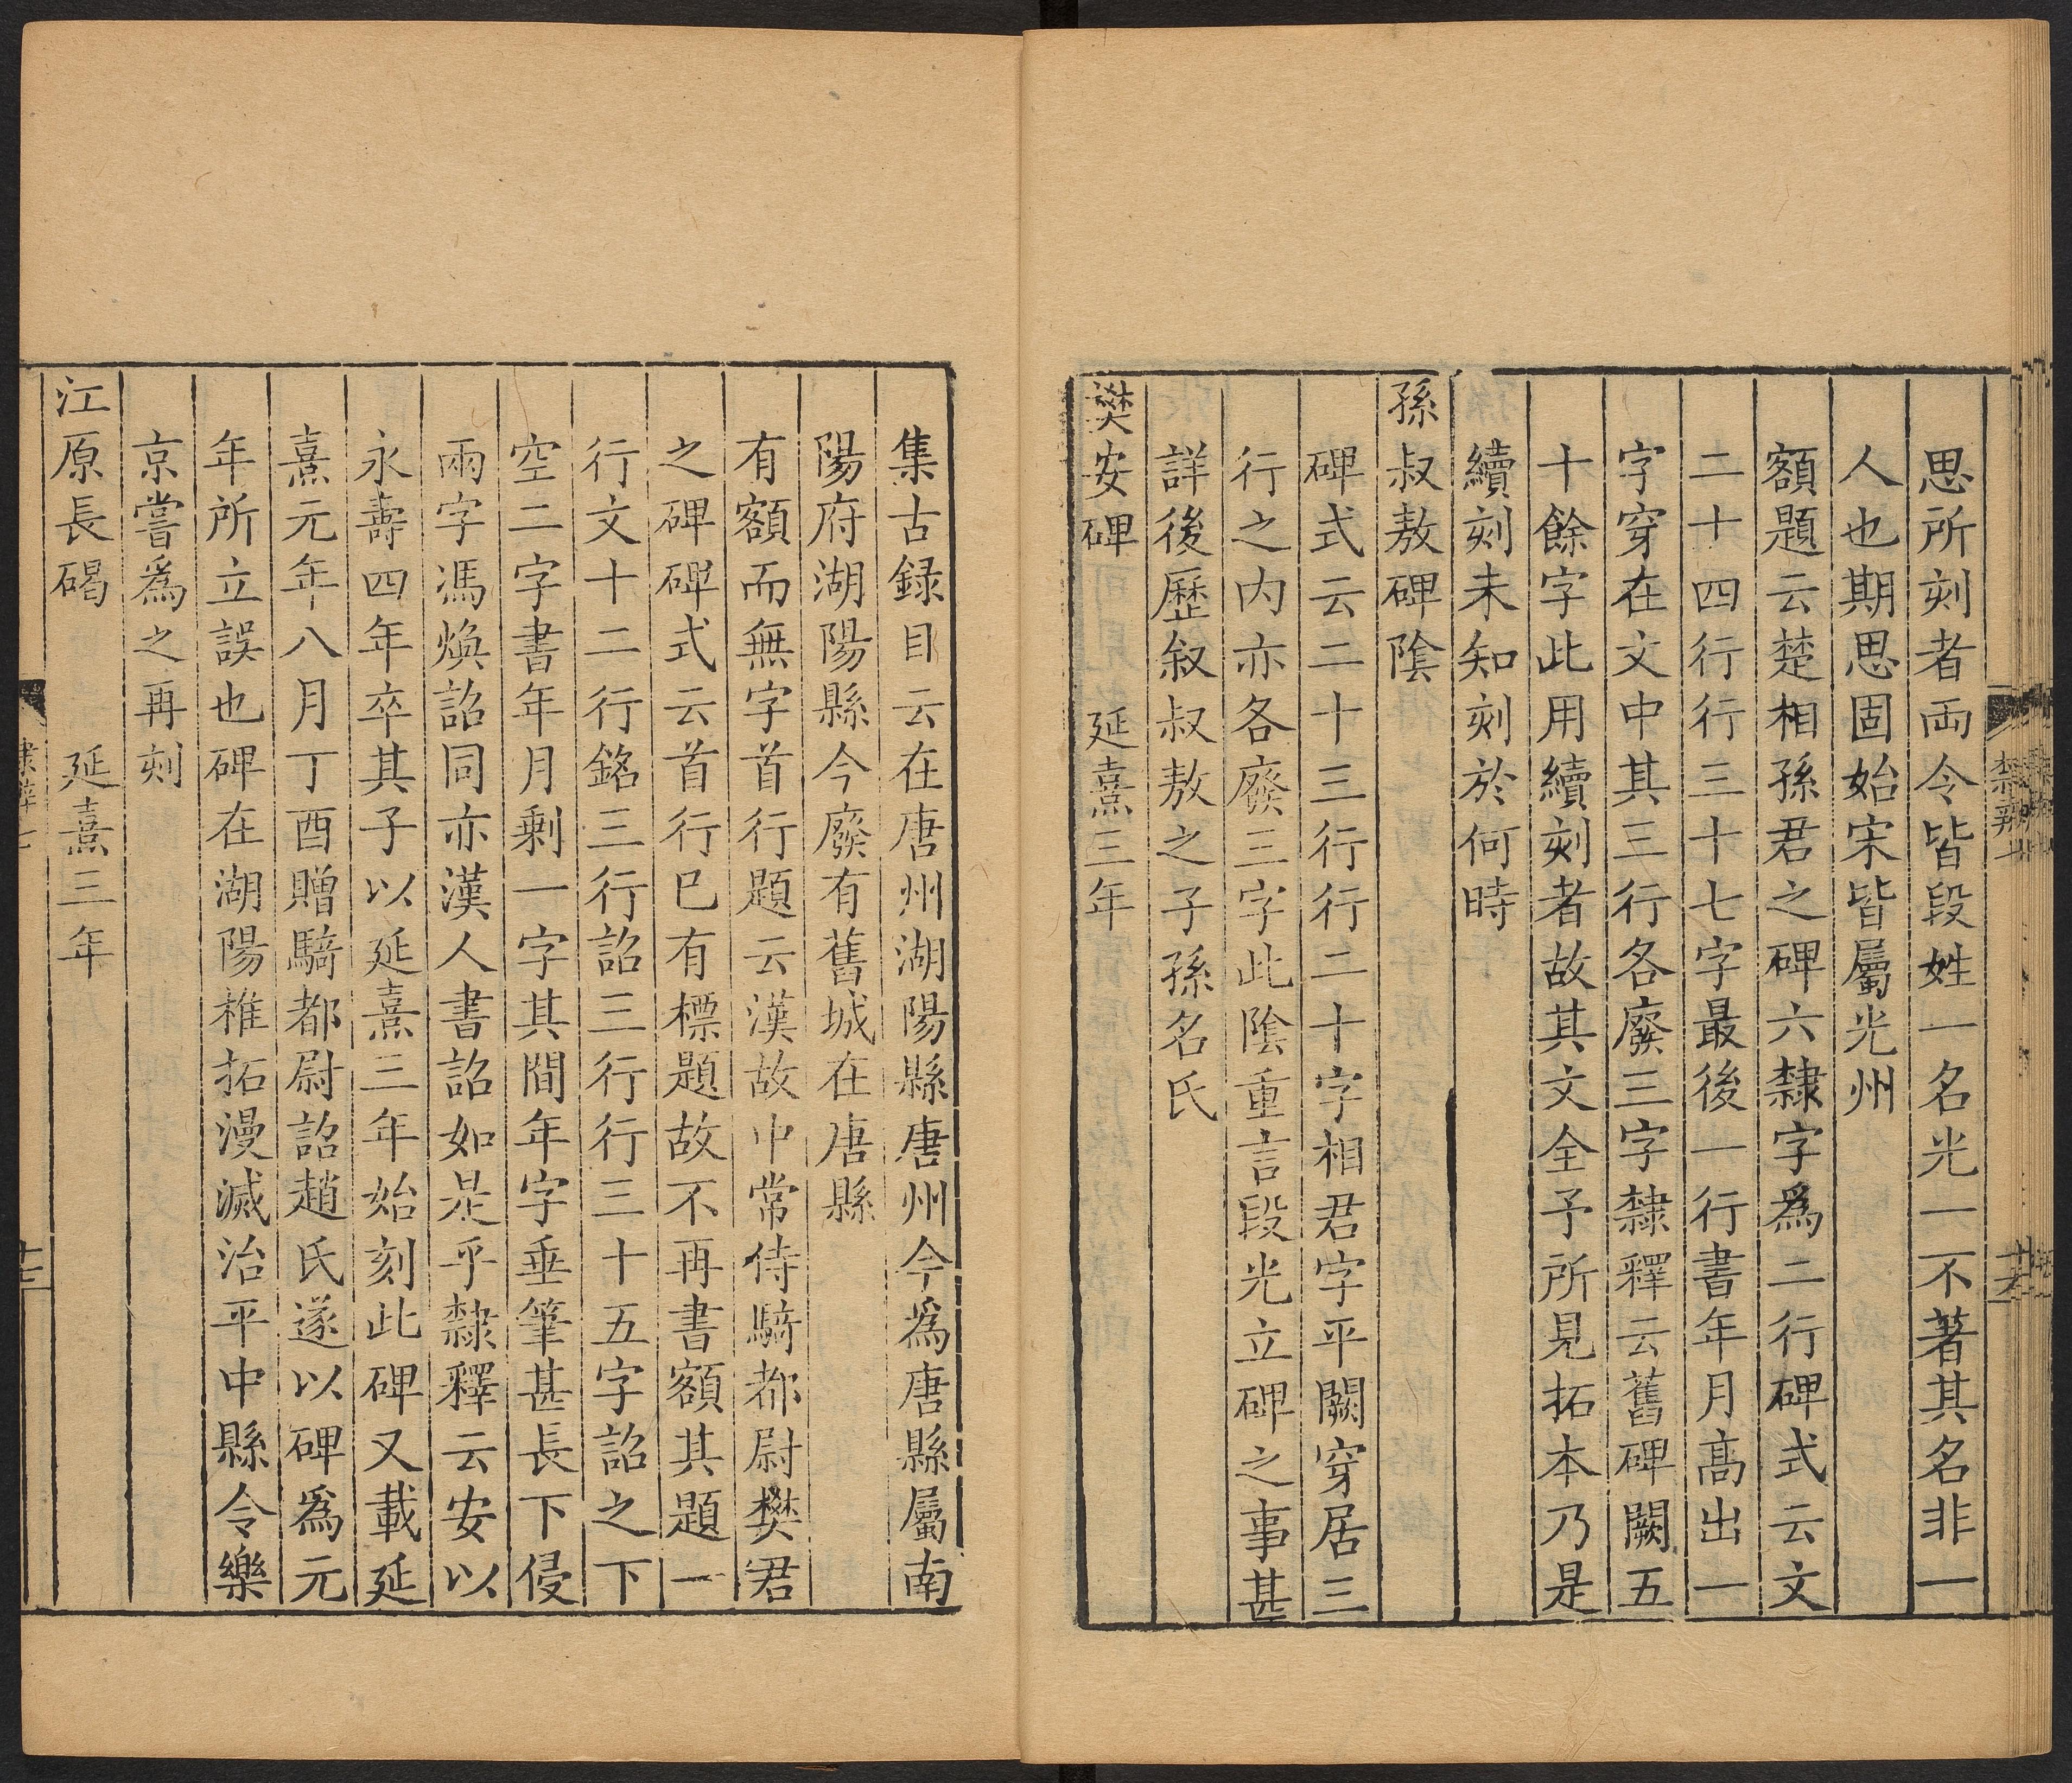 思所刻者両令皆段姓一名光一不著其名非一
人也期思固始宋皆屬光州
額題云楚相孫君之碑六隸字爲二行碑式云文
二十四行行三十七字最後一行書年月髙出一
字穿在文中其三行各廢三字隸釋云舊碑闕五
十餘字此用續刻者故其文全予所見拓本乃是
續刻未知刻於何時
孫叔敖碑陰
碑式云二十三行行二十字相君字平闕穿居三
行之内亦各廢三字此陰重言段光立碑之事甚
詳後歷叙叔敖之子孫名氏
樊安碑 延熹三年
集古録目云在唐州湖陽縣唐州今爲唐縣屬南
陽府湖陽縣今廢有舊城在唐縣
有額而無字首行題云漢故中常侍騎都尉樊君
之碑碑式云首行巳有標題故不再書額其題一
行文十二行銘三行詔三行行三十五字詔之下
空二字書年月剩一字其間年字垂筆甚長下侵
兩字馮煥詔同亦漢人書詔如是乎隸釋云安以
永壽四年卒其子以延熹三年始刻此碑又載延
熹元年八月丁酉贈騎都尉詔趙氏遂以碑爲元
年所立誤也碑在湖陽椎拓漫滅治平中縣令樂
京嘗爲之再刻
江原長碣 延熹三年